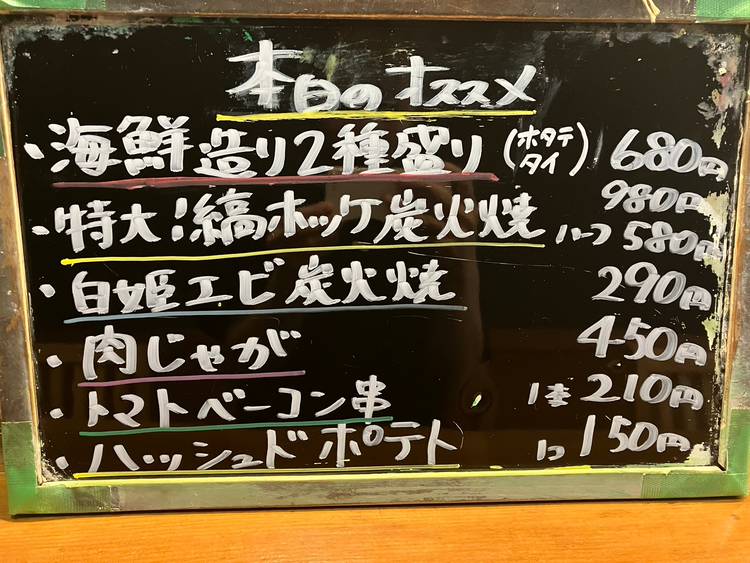 本日のオススメ
・海鮮造り2種盛り(ホタテ タイ) 680円
・特大!縞ホッケ炭火焼 980円
ハーフ 580円
・白姫エビ炭火焼 290円
・肉じゃが 450円
・トマトベーコン串 1本 210円
・ハッシュドポテト 1コ 150円